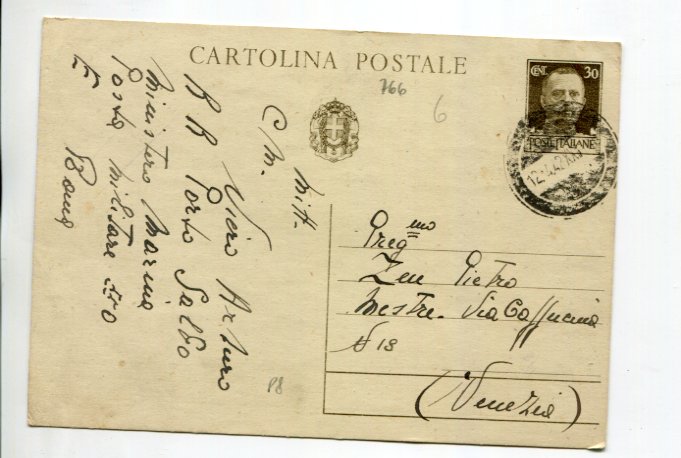 CARTOLINA POSTALE
CENT. 30
POSTE ITALIANE
766
6
12. .42.XX
Mitt.
C M. Vicio Arturo
R R Porto Salvo
Ministero Marina
Posta Militare
Roma
P8
Preg mo
Zen Pietro
Mestre. Via Cappuccina
N 18
(Venezia)